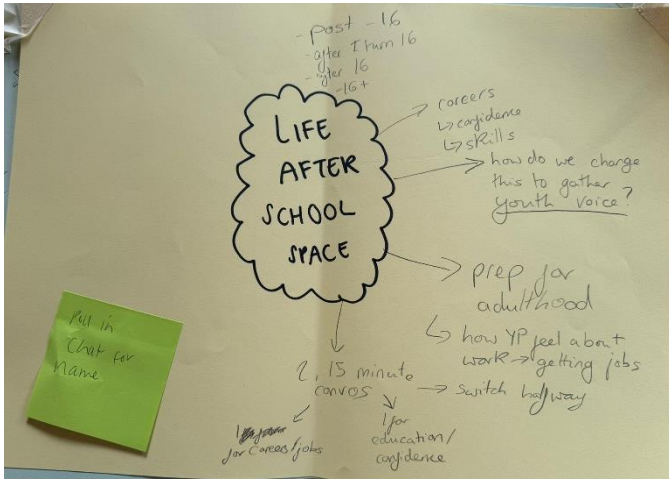 - post - 16
- after I turn 16
- after 16
- 16+
LIFE
AFTER
SCHOOL
SPACE
careers
↳ confidence
↳ skills
how do we change
this to gather
youth voice?
prep for
adulthood
↳ how YP feel about
work → getting jobs
2, 15 minute
convos → switch halfway
1
for careers/jobs
1 for
education/
confidence
Poll in
Chat for
name